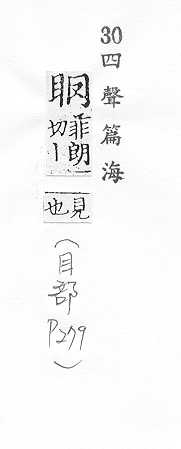 30
四聲篇海
菲朗
切
見
也
(目部
P279)